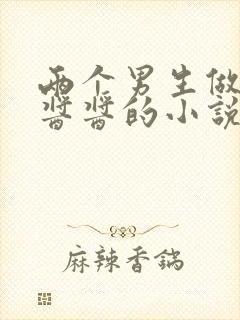 两个男生做
酱酱的小说
麻辣香锅